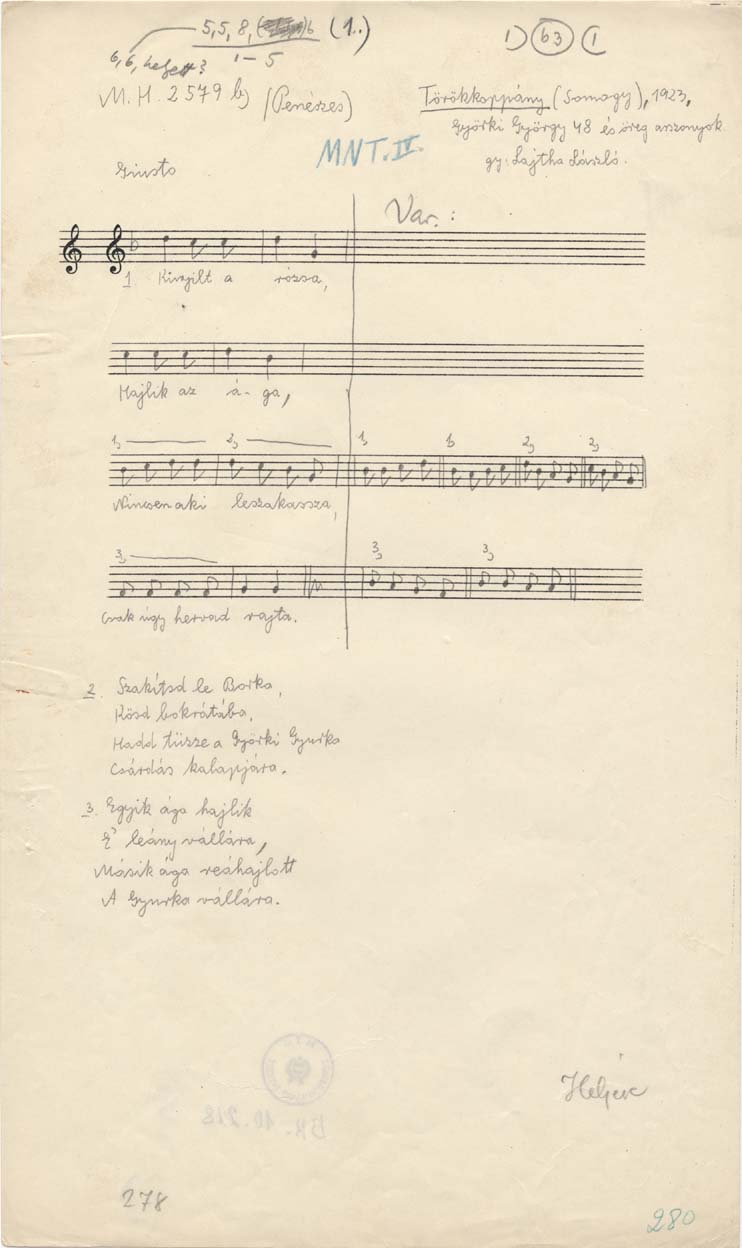 5, 5, 8, 6 (1..)
1 – 5
6, 6, helyett?
1) (b3) (1
M. H. 2579 b) (Penészes)
Törökkoppány (Somogy), 1923,
Györki György 48 és öreg asszonyok.
gy: Lajtha László.
MNT. IV.
Giusto
Var. :
1 Kinyilt a rózsa,
Hajlik az á-ga,
1, 2, 1, 1, 2, 2,
Nincsen aki leszakassza,
3, 3, 3,
Csak úgy hervad rajta.
2. Szakítsd le Borka,
Kösd bokrátába,
Hadd tüzze a Györki Gyurka
Csárdás kalapjára.
3. Egyik ága hajlik
E' leány vállára,
Másik ága reáhajlott
A Gyurka vállára.
BR. 10.218
278
280